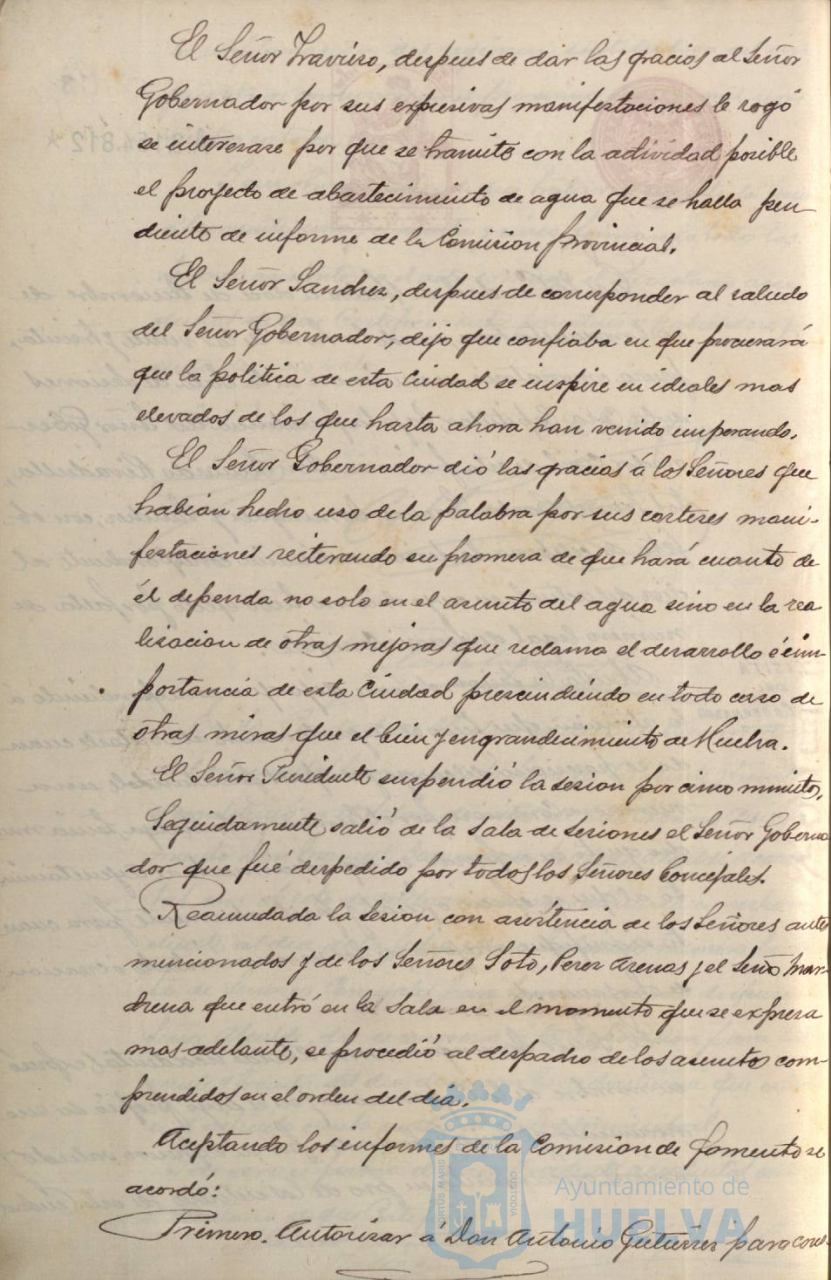 El Señor Travieso, despues de dar las gracias al Señor
Gobernador por sus expresivas manifestaciones le rogó
se interesase por que se tramite con la actividad posible
el proyecto de abastecimiento de agua que se halla pen-
diente de informe de la Comision provincial.
El Señor Sanchez, despues de corresponder al saludo
del Señor Gobernador, dijo que confiaba en que procurará
que la politica de esta Ciudad se inspire en ideales mas
elevados de los que hasta ahora han venido imperando.
El Señor Gobernador dió las gracias á los Señores que
habian hecho uso de la palabra por sus corteses mani-
festaciones reiterando su promesa de que hará cuanto de
él dependa no solo en el asunto del agua sino en la rea
lizacion de otras mejoras que reclama el desarrollo é im-
portancia de esta Ciudad prescindiendo en todo caso de
otras miras que el bien y engrandecimiento de Huelva.
El Señor Presidente suspendió la sesion por cinco minutos.
Seguidamente salió de la Sala de Sesiones el Señor Goberna
dor que fué despedido por todos los Señores Concejales.
Reanudada la Sesion con asistencia de los Señores ante
mencionados y de los Señores Soto, Perez Arenas y el Señor Mar-
chena que entró en la Sala en el momento que se expresa
mas adelante, se procedió al despacho de los asuntos com-
prendidos en el orden del dia.
Aceptando los informes de la Comision de fomento se
acordó:
Primero. Autorizar á Don Antonio Gutierrez para cons-
Ayuntamiento de
HUELVA